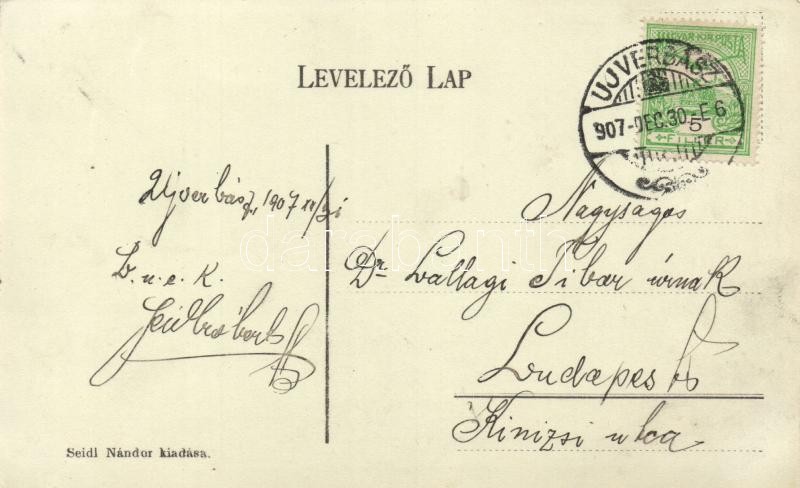 MAGYAR KIR. POSTA
UJVERBÁSZ
907-DEC.30.-E6
5
FILLÉR
LEVELEZŐ LAP
Ujverbász, 1907 XII/31
B. u. é. k.
Nagyságos
Dr Ballagi Tibor úrnak
Budapest
Kinizsi utca
Seidl Nándor kiadása.
darabanth